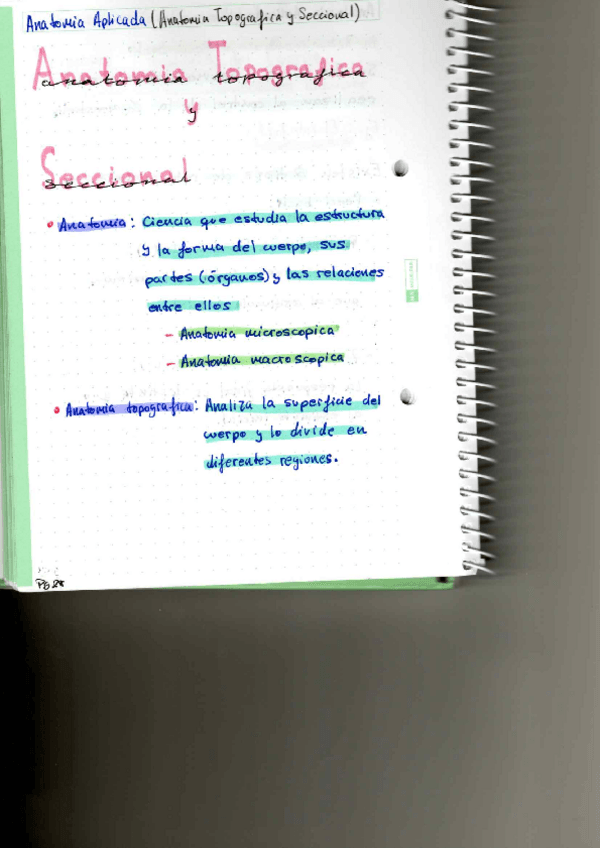 Anatomia Aplicada (Anatomia Topografica y Seccional)
Anatomia Topografica
y
Seccional
• Anatomia: Ciencia que estudia la estructura
y la forma del cuerpo, sus
partes (órganos) y las relaciones
entre ellos
- Anatomia microscopica
- Anatomia macroscopica
• Anatomia topografica: Analiza la superficie del
cuerpo y lo divide en
diferentes regiones.